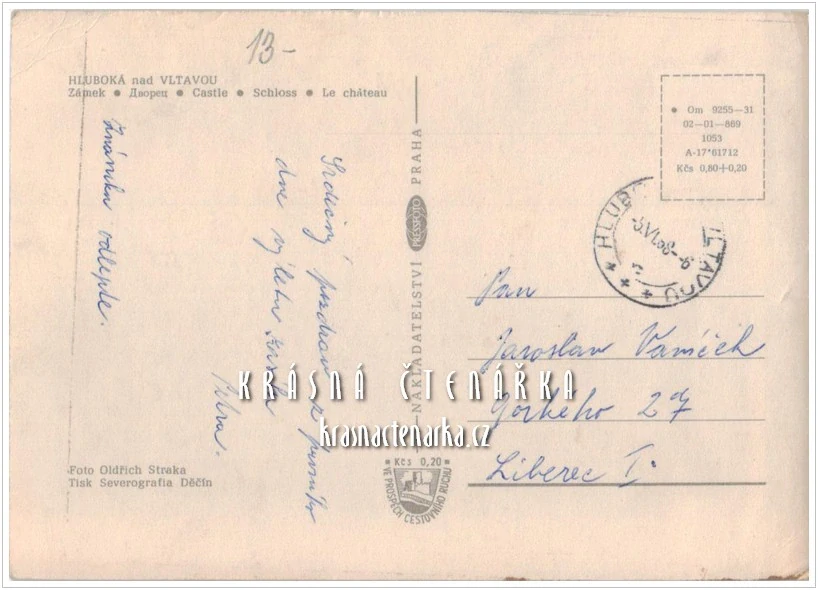 13-
HLUBOKÁ nad VLTAVOU
Zámek ● Дворец ● Castle ● Schloss ● Le château
● Om 9255—31
02—01—869
1053
A-17*61712
Kčs 0,80+0,20
Známku odlepte.
Srdečný pozdrav z
dne výletu
NAKLADATELSTVÍ PRESSFOTO PRAHA
HLUBO LTAVOU
-5.VI.68--8
Pan
Jaroslav Vaníček
Gorkého 27
Liberec I.
KRÁSNÁ ČTENÁŘKA
krasnactenarka.cz
● Kčs 0,20 ●
VE PROSPĚCH CESTOVNÍHO RUCHU
Foto Oldřich Straka
Tisk Severografia Děčín